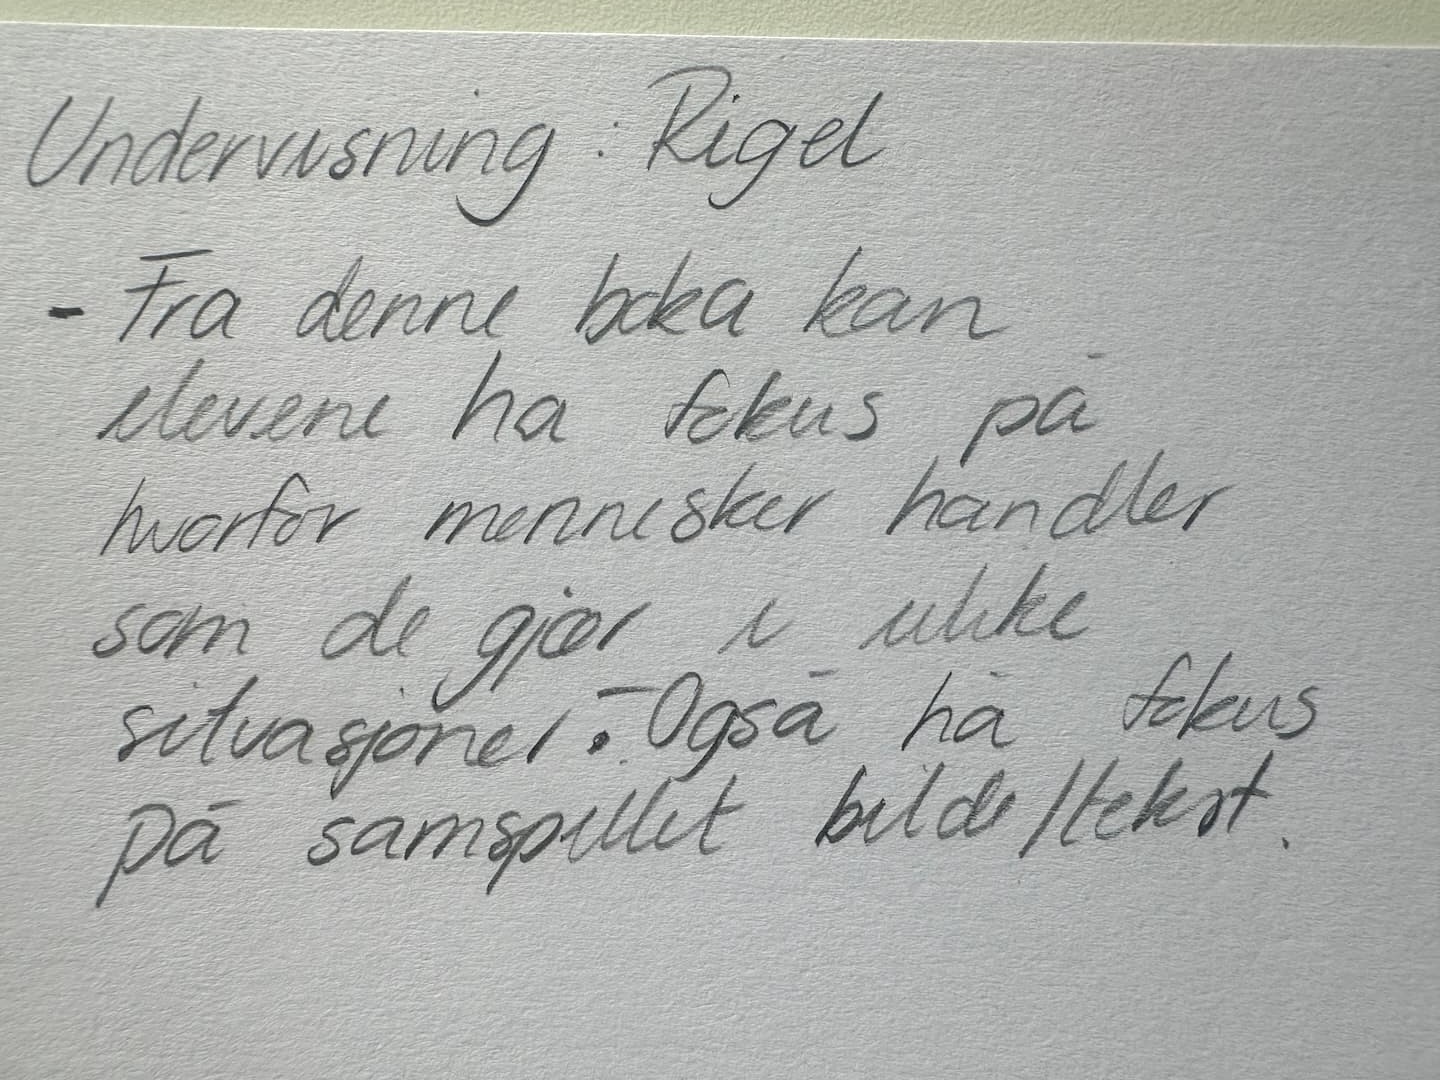 Undervisning : Rigel
- Fra denne boka kan
elevene ha fokus på
hvorfor mennesker handler
som de gjør i ulike
situasjoner. - Også ha fokus
på samspillet bilde/tekst.